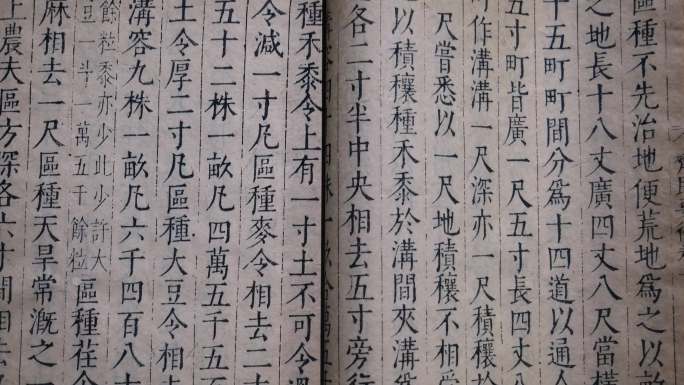 區種不先治地便荒地爲之以畝
之地長十八丈廣四丈八尺當橫
十五町町間分爲十四道以通人
五寸町皆廣一尺五寸長四丈八
町作溝溝一尺深亦一尺積穰於
尺嘗悉以一尺地積穰不相
之以積穰種禾黍於溝間夾溝
各二寸半中央相去五寸旁行
種禾黍令上有一寸土不可令
令減一寸凡區種麥令相去二
五十二株一畝凡四萬五千五
土令厚二寸凡區種大豆令相
溝容九株一畝凡六千四百八十
餘粒黍亦少此少許大
豆一斗一萬五千餘粒
區種荏令
麻相去一尺區種天旱常溉之一
上農夫區方深各六寸間相去